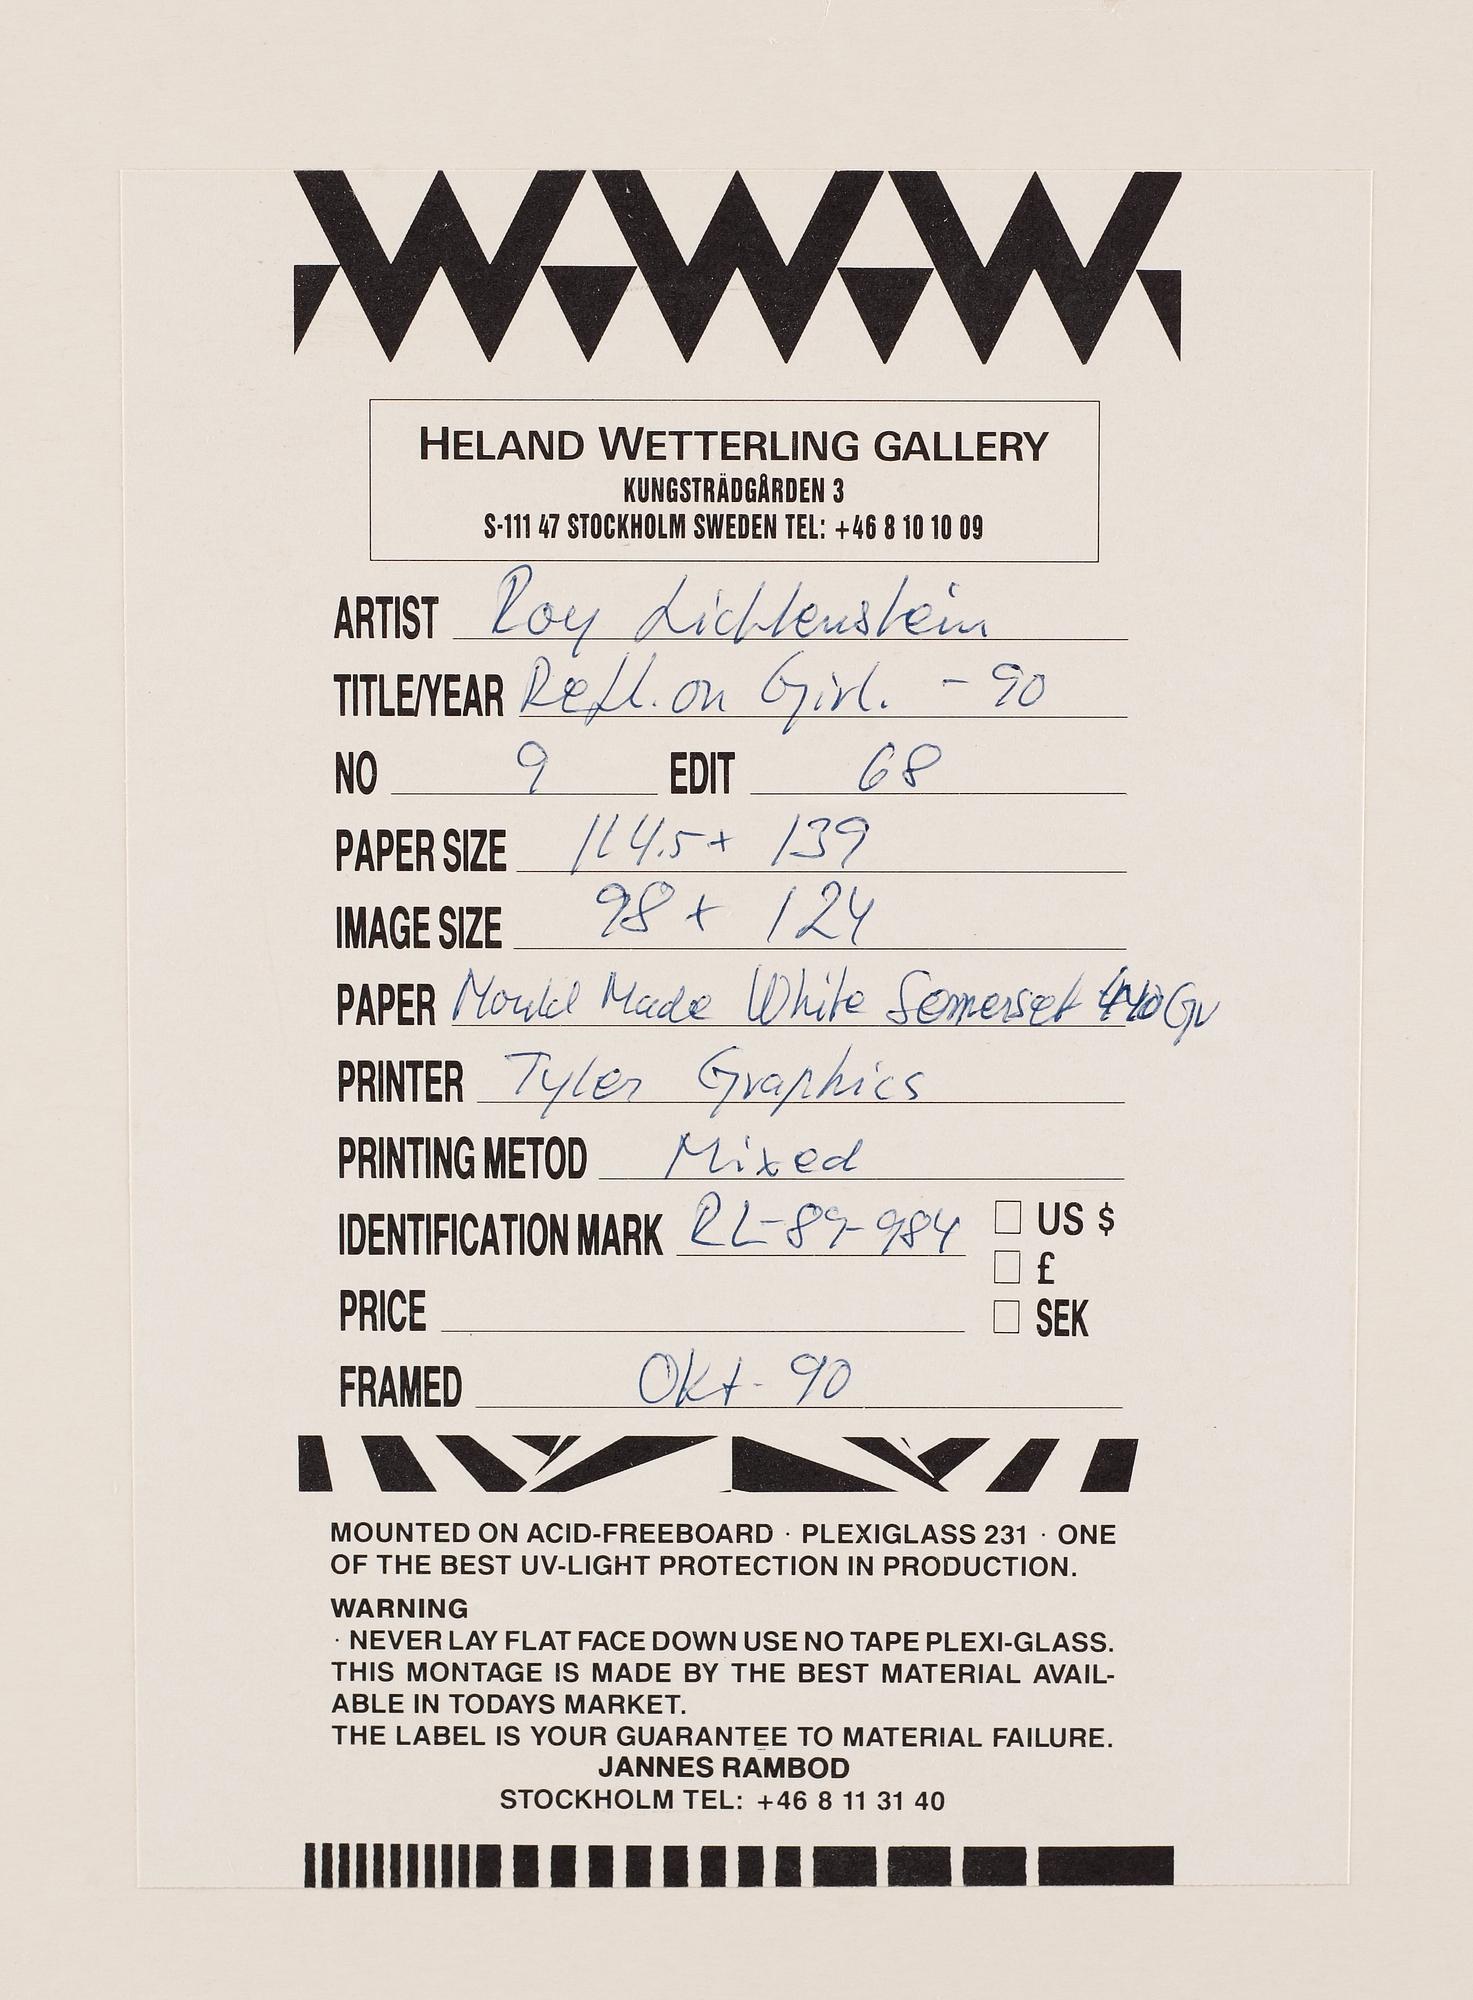 WWW
HELAND WETTERLING GALLERY
KUNGSTRÄDGÅRDEN 3
S-111 47 STOCKHOLM SWEDEN TEL: +46 8 10 10 09
ARTIST Roy Lichtenstein
TITLE/YEAR Refl. on Girl. - 90
NO 9 EDIT 68
PAPER SIZE 114.5 + 139
IMAGE SIZE 98 + 124
PAPER Mould Made White Somerset
PRINTER Tyler Graphics
PRINTING METOD Mixed
IDENTIFICATION MARK RL-89-984 US $
£
PRICE SEK
FRAMED Okt - 90
MOUNTED ON ACID-FREEBOARD · PLEXIGLASS 231 · ONE
OF THE BEST UV-LIGHT PROTECTION IN PRODUCTION.
WARNING
· NEVER LAY FLAT FACE DOWN USE NO TAPE PLEXI-GLASS.
THIS MONTAGE IS MADE BY THE BEST MATERIAL AVAIL-
ABLE IN TODAYS MARKET.
THE LABEL IS YOUR GUARANTEE TO MATERIAL FAILURE.
JANNES RAMBOD
STOCKHOLM TEL: +46 8 11 31 40